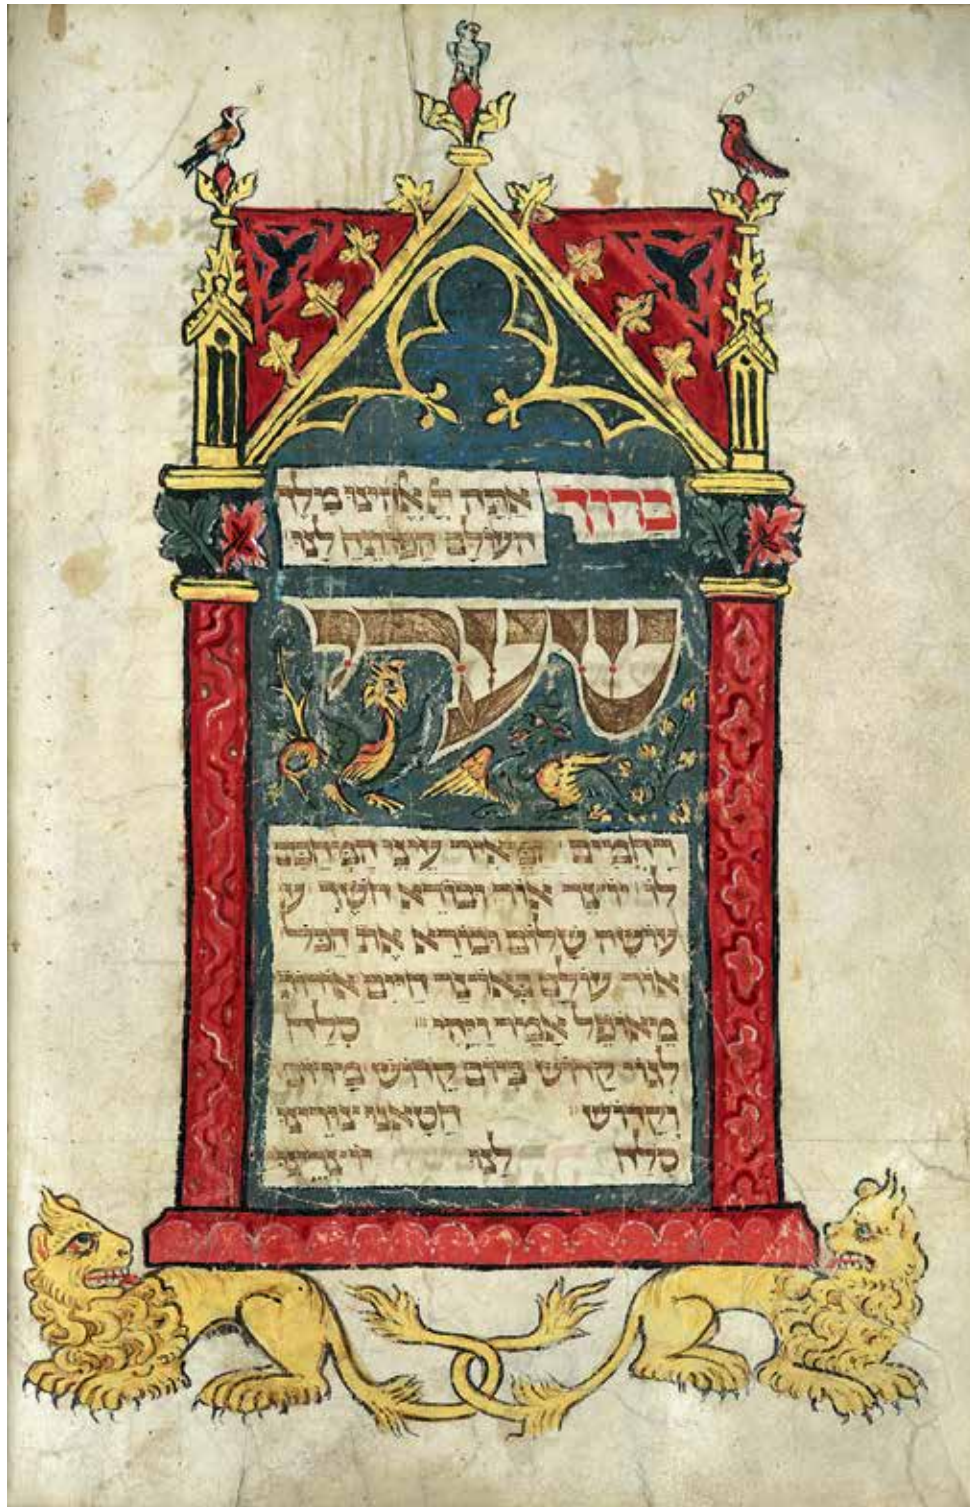 ברוך אתה יְיָ אֱלֹהֵינוּ מֶלֶךְ
העולם הפותח לנו
שערי
רחמים ומאיר עיני המחכים
לו יוצר אור ובורא חשך
עושה שלום ובורא את הכל
אור עולם באוצר חיים אורות
מאופל אמר ויהי סלח
לגוי קדוש ביום קדוש מרום
וקדוש חטאנו צורינו
סלח לנו יוצרינו